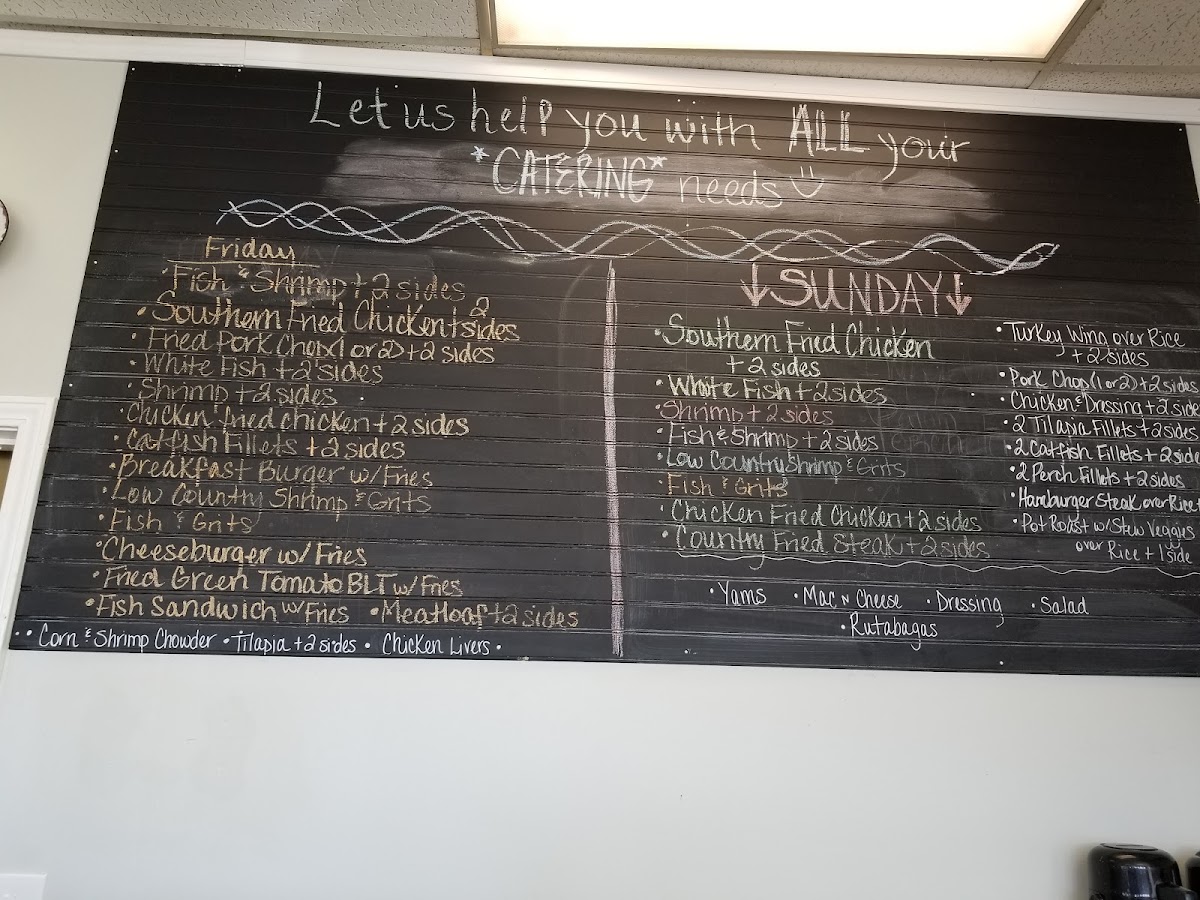 Let us help you with ALL your
*CATERING* needs
Friday
• Fish & Shrimp + 2 sides
• Southern Fried Chicken + 2 sides
• Fried Pork Chop (1 or 2) + 2 sides
• White Fish + 2 sides
• Shrimp + 2 sides
• Chicken fried chicken + 2 sides
• Catfish Fillets + 2 sides
• Breakfast Burger w/ Fries
• Low Country Shrimp & Grits
• Fish & Grits
• Cheeseburger w/ Fries
• Fried Green Tomato BLT w/ Fries
• Fish Sandwich w/ Fries • Meatloaf + 2 sides
• • Corn & Shrimp Chowder • Tilapia + 2 sides • Chicken Livers •
↓SUNDAY↓
• Southern Fried Chicken
+ 2 sides
• White Fish + 2 sides
• Shrimp + 2 sides
• Fish & Shrimp + 2 sides
• Low Country Shrimp & Grits
• Fish & Grits
• Chicken Fried Chicken + 2 sides
• Country Fried Steak + 2 sides
• Turkey Wing over Rice
+ 2 sides
• Pork Chop (1 or 2) + 2 sides
• Chicken & Dressing + 2 side
• 2 Tilapia Fillets + 2 sides
• 2 Catfish Fillets + 2 side
• 2 Perch Fillets + 2 sides
• Hamburger Steak over Rice +
• Pot Roast w/ Stew Veggies
over Rice + 1 side
• Yams • Mac n Cheese • Dressing • Salad
• Rutabagas